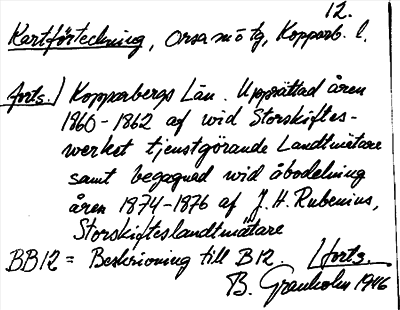 12.
Kartförteckning, Orsa m ö tg, Kopparb. l.
forts./ Kopparbergs Län. Upprättad åren
1860-1862 af wid Storskiftes-
werket tjenstgörande Landtmätare
samt begagnad wid åbodelning
åren 1874-1876 af J. H. Rubenius,
Storskifteslandtmätare
BB12 = Beskrivning till B12. /forts.
B. Granholm 1946